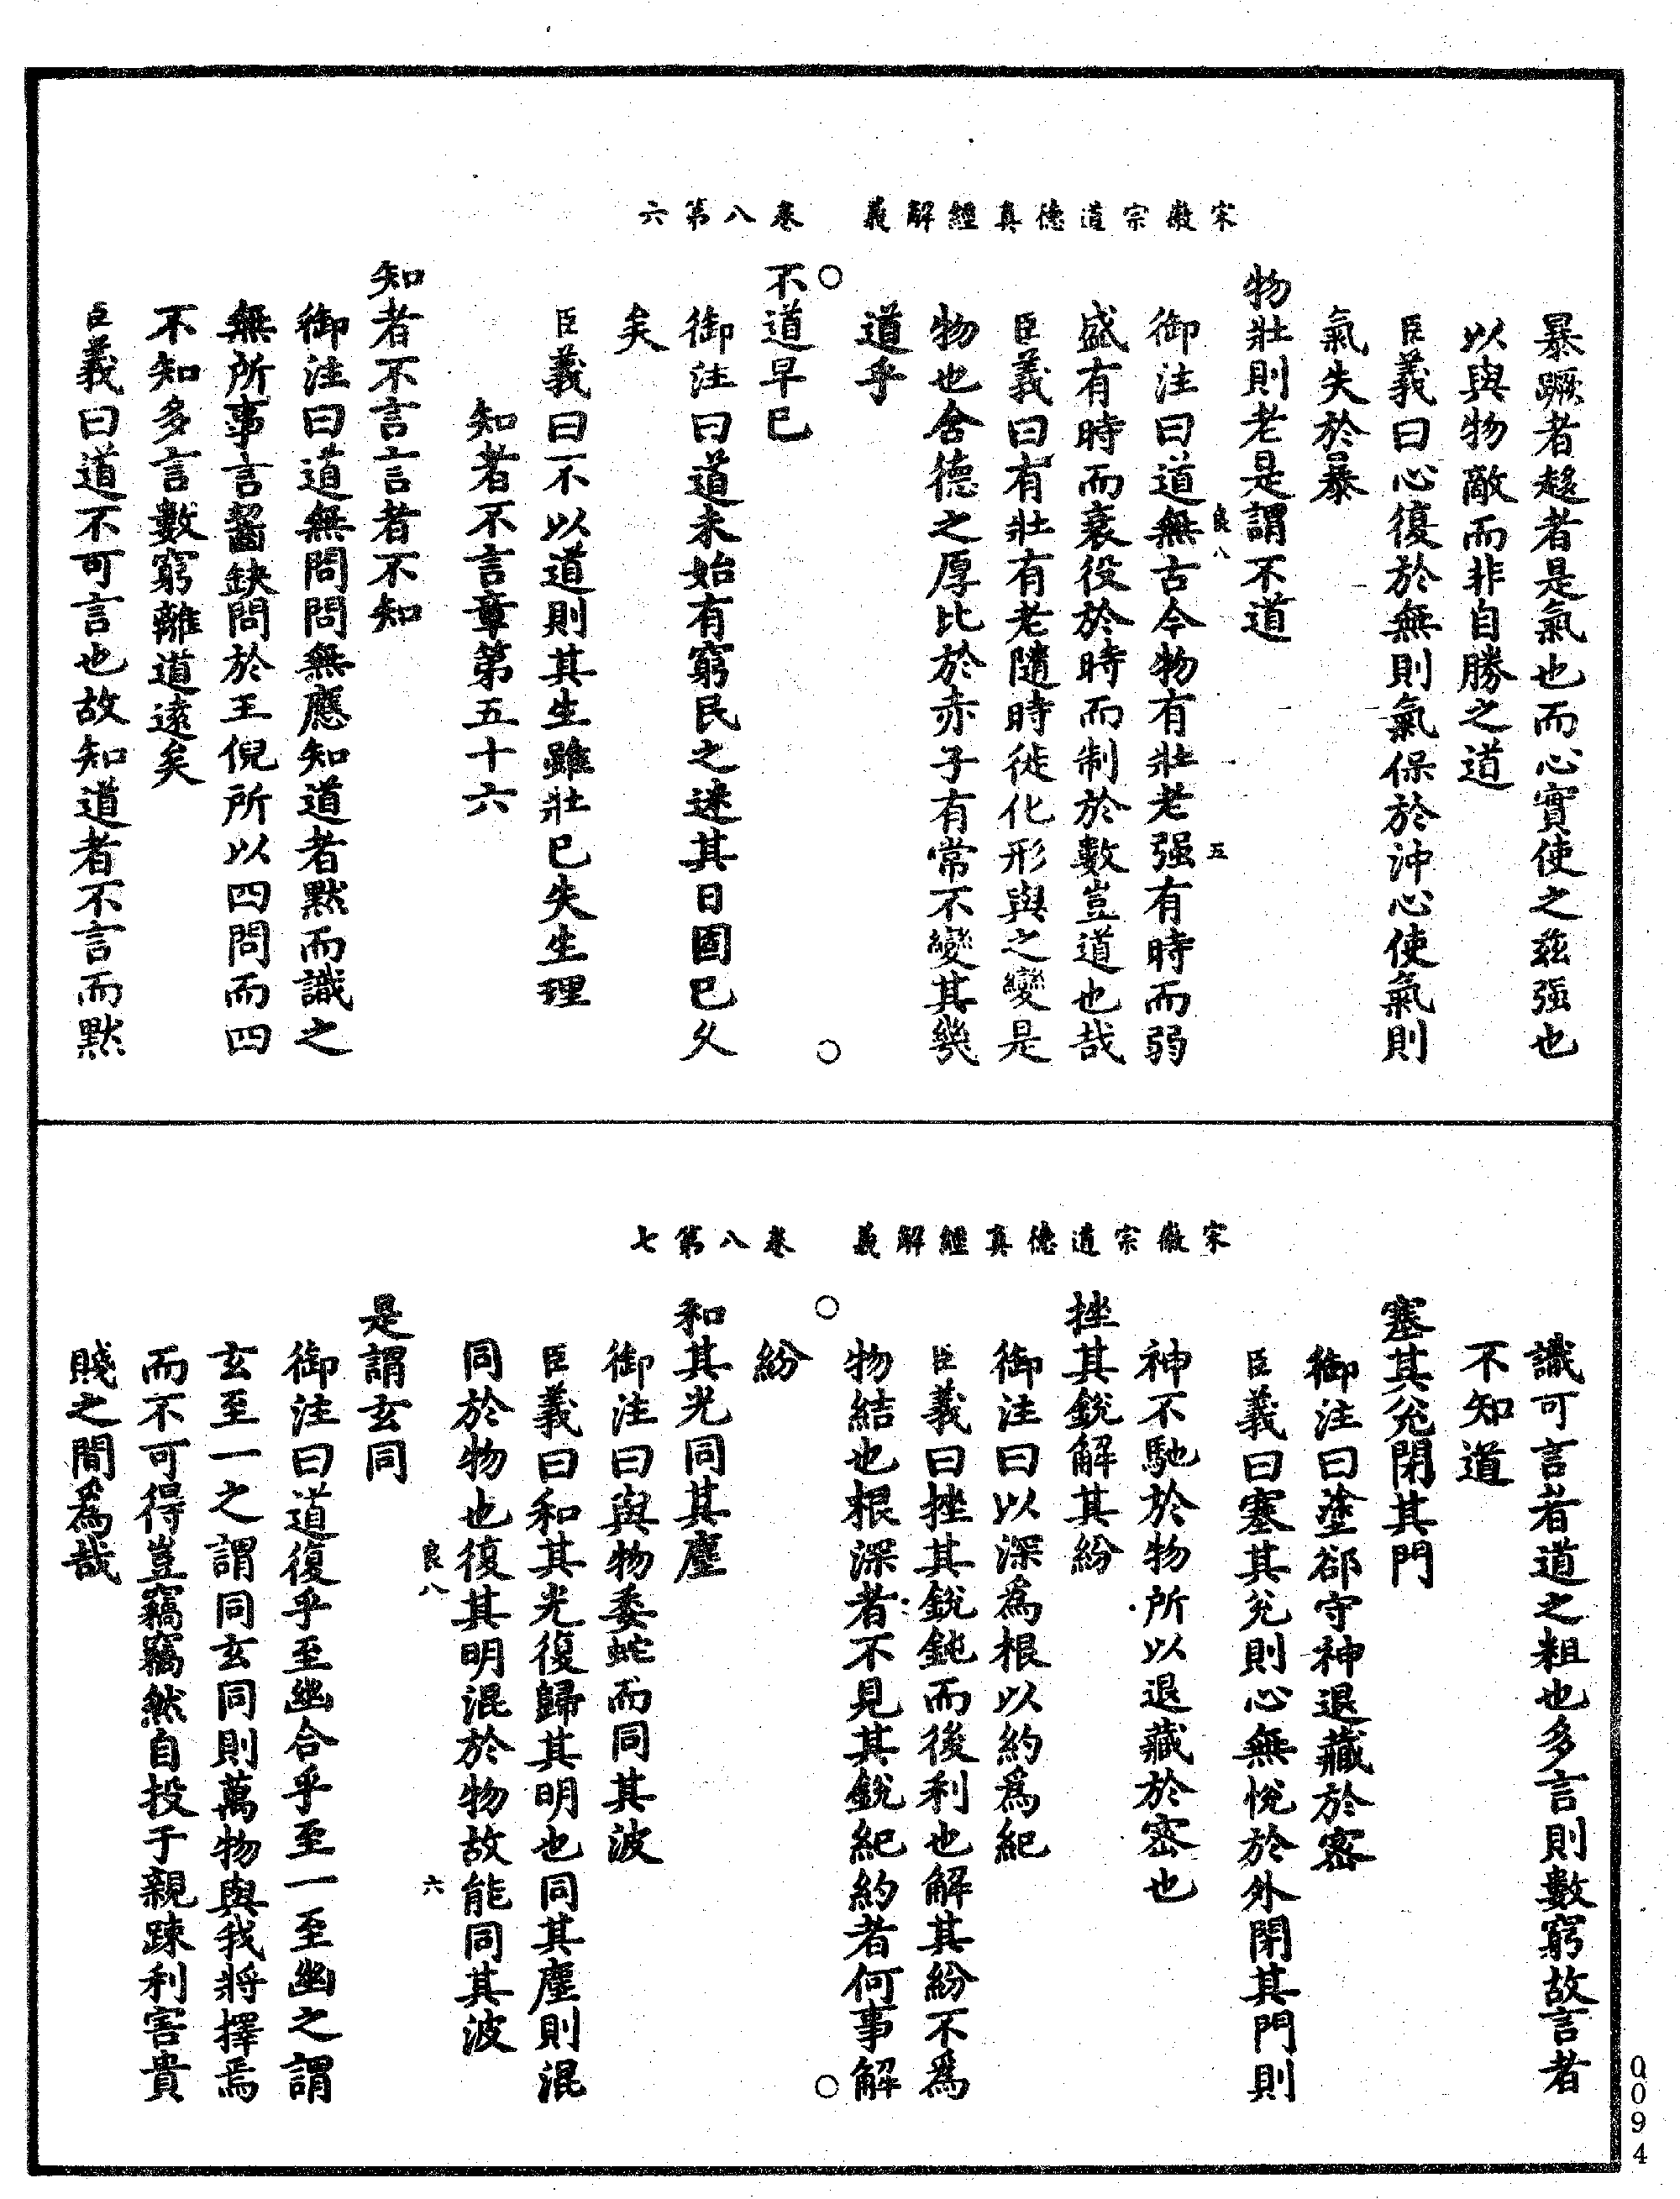 宋徽宗道德真經解義　卷八第六
暴蹶者趍者是氣也而心實使之茲强也
以與物敵而非自勝之道
臣義曰心復於無則氣保於沖心使氣則
氣失於暴
物壯則老是謂不道
良八　五
御注曰道無古今物有壯老强有時而弱
盛有時而衰役於時而制於數豈道也哉
臣義曰有壯有老隨時徙化形與之變是
物也含德之厚比於赤子有常不變其幾
道乎
不道早已
御注曰道未始有窮民之迷其日固已久
矣
臣義曰不以道則其生雖壯已失生理
知者不言章第五十六
知者不言言者不知
御注曰道無問問無應知道者默而識之
無所事言齧缺問於王倪所以四問而四
不知多言數窮離道遠矣
臣義曰道不可言也故知道者不言而默
宋徽宗道德真經解義　卷八第七
識可言者道之粗也多言則數窮故言者
不知道
塞其兌閉其門
御注曰塗郤守神退藏於密
臣義曰塞其兌則心無悅於外閉其門則
神不馳於物所以退藏於密也
挫其銳解其紛
御注曰以深為根以約為紀
臣義曰挫其銳鈍而後利也解其紛不為
物結也根深者不見其銳紀約者何事解
紛
和其光同其塵
御注曰與物委蛇而同其波
臣義曰和其光復歸其明也同其塵則混
同於物也復其明混於物故能同其波
良八　六
是謂玄同
御注曰道復乎至幽合乎至一至幽之謂
玄至一之謂同玄同則萬物與我將擇焉
而不可得豈竊竊然自投于親踈利害貴
賤之間為哉
0094